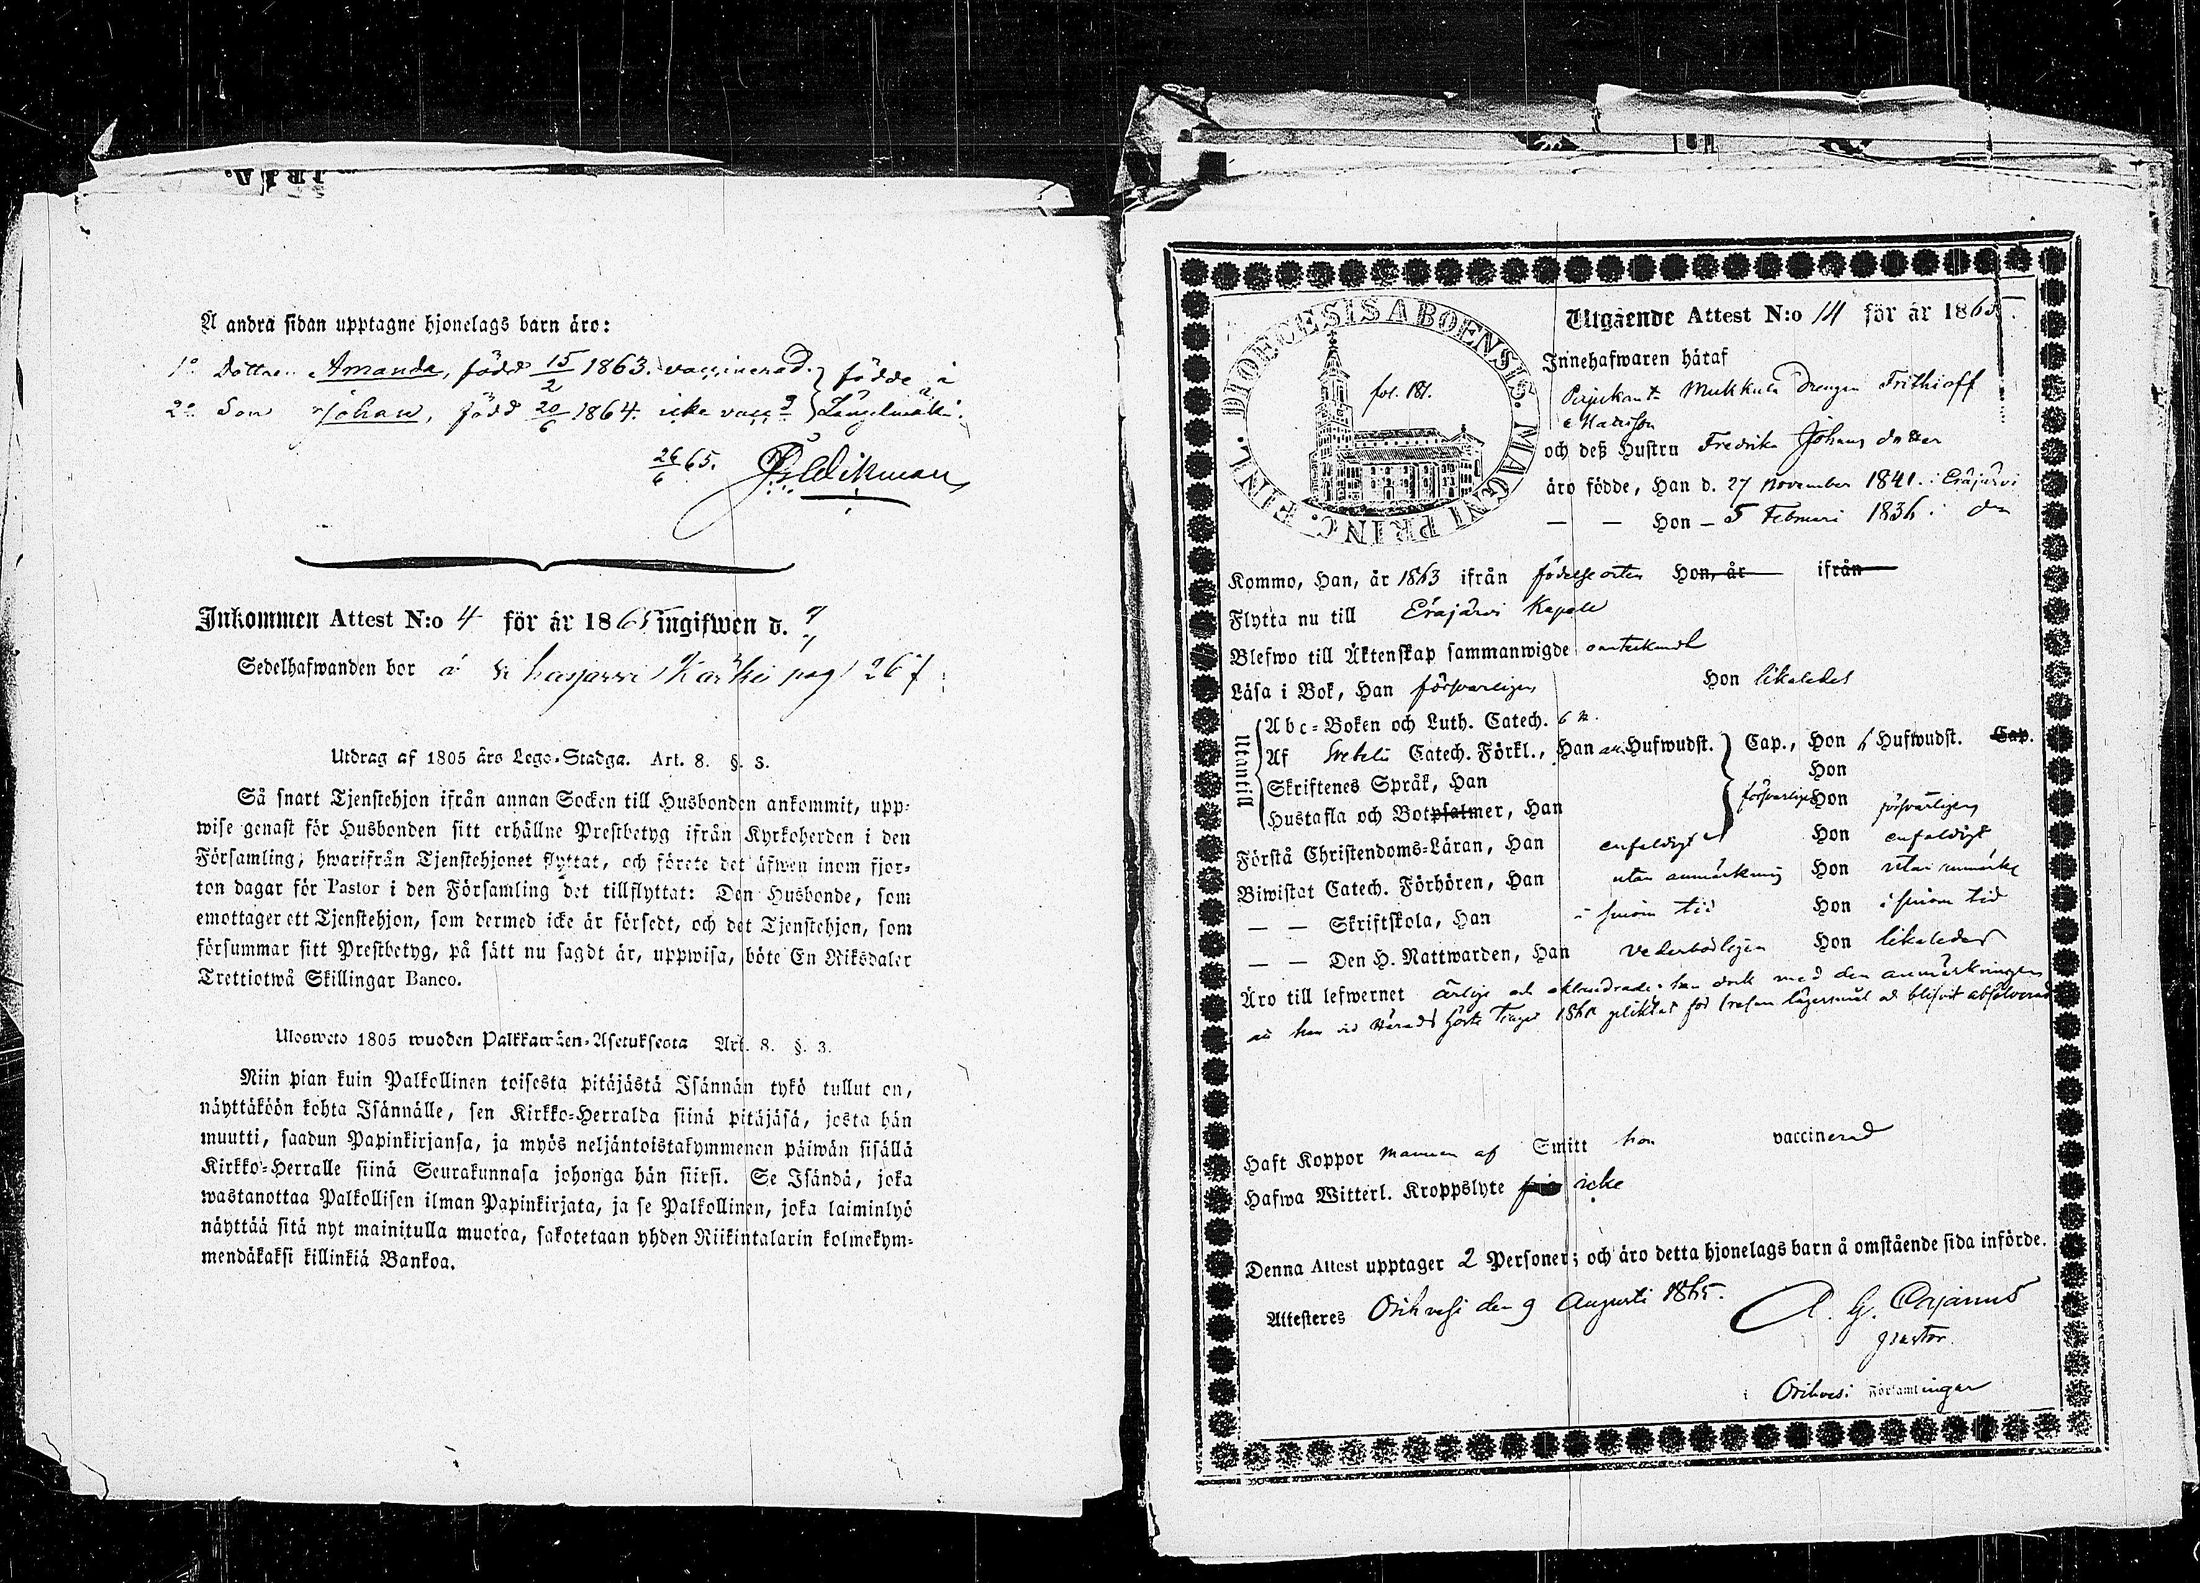 Å andra sidan upptagne hjonelags barn äro:
1o Dottren Amanda, född 15/2 1863. vaccinerad. } födde i
2o Son Johan, född 20/6 1864. icke vacc. } Längelmäki.
26/6 65. Wikman
Inkommen Attest N:o 4 för år 1865 ingifwen d.
Sedelhafwanden bor å pag 267
Utdrag af 1805 års Lego-Stadga. Art. 8. §. 3.
Så snart Tjenstehjon ifrån annan Socken till Husbonden ankommit, upp-
wise genast för Husbonden sitt erhållne Prestbetyg ifrån Kyrkoherden i den
Församling, hwarifrån Tjenstehjonet flyttat, och förete det äfwen inom fjor-
ton dagar för Pastor i den Församling det tillflyttat: Den Husbonde, som
emottager ett Tjenstehjon, som dermed icke är försedt, och det Tjenstehjon, som
försummar sitt Prestbetyg, på sätt nu sagdt är, uppwisa, böte En Riksdaler
Trettiotwå Skillingar Banco.
Ulosweto 1805 wuoden Palkkawäen-Asetuksesta Art. 8. §. 3.
Niin pian kuin Palkollinen toisesta pitäjästä Isännän tykö tullut on,
näyttäköön kohta Isännälle, sen Kirkko-Herralda siinä pitäjäsä, josta hän
muutti, saadun Papinkirjansa, ja myös neljäntoistakymmenen päiwän sisällä
Kirkko-Herralle siinä Seurakunnasa johonga hän siirsi. Se Isändä, joka
wastanottaa Palkollisen ilman Papinkirjata, ja se Palkollinen, joka laiminlyö
näyttää sitä nyt mainitulla muotoa, sakotetaan yhden Riikintalarin kolmekym-
mendäkaksi killinkiä Bankoa.
DIOECESIS ABOENSIS. MAGNI PRINC. FINL.
fol. 181.
Utgående Attest N:o 14 för år 1865.
Innehafwaren häraf
Mukkula Drengen Frithioff
Mattsson
och deß Hustru Fredrika Johansdotter
äro födde, Han d. 27 November 1841. i Eräjärvi
— — Hon — 5 Februari 1836. i den
Kommo, Han, år 1863 ifrån födelseorten Hon, år ifrån
Flytta nu till Eräjärvi Kapell
Blefwo till Äktenskap sammanwigde
Läsa i Bok, Han försvarligen Hon likaledes
Utantill
Abc-Boken och Luth. Catech. 6 H.
Af Svebelii Catech. Förkl., Han Hufwudst. } Cap., Hon 6 Hufwudst. Cap.
Skriftenes Språk, Han Hon
Hustafla och Botpsalmer, Han försvarligen Hon försvarligen
Förstå Christendoms-Läran, Han enfaldigt Hon enfaldigt
Biwistat Catech. Förhören, Han utan anmärkning Hon utan anmärkn
— — Skriftskola, Han i sinom tid Hon i sinom tid
— — Den H. Nattwarden, Han vederbörligen Hon likaledes
Äro till lefwernet ärlige och oklandrade, han dock med den anmärkningen
att han vid Härads höste Tinget pliktat för lägersmål och blifvit absolverad
Haft Koppor mannen af Smitt hon vaccinerad
Hafwa Witterl. Kroppslyte icke
Denna Attest upptager 2 Personer; och äro detta hjonelags barn å omstående sida införde.
Attesteres Orihvesi den 9 Augusti 1865.
A. G. Cajanus
pastor.
i Orihvesi Församlingar